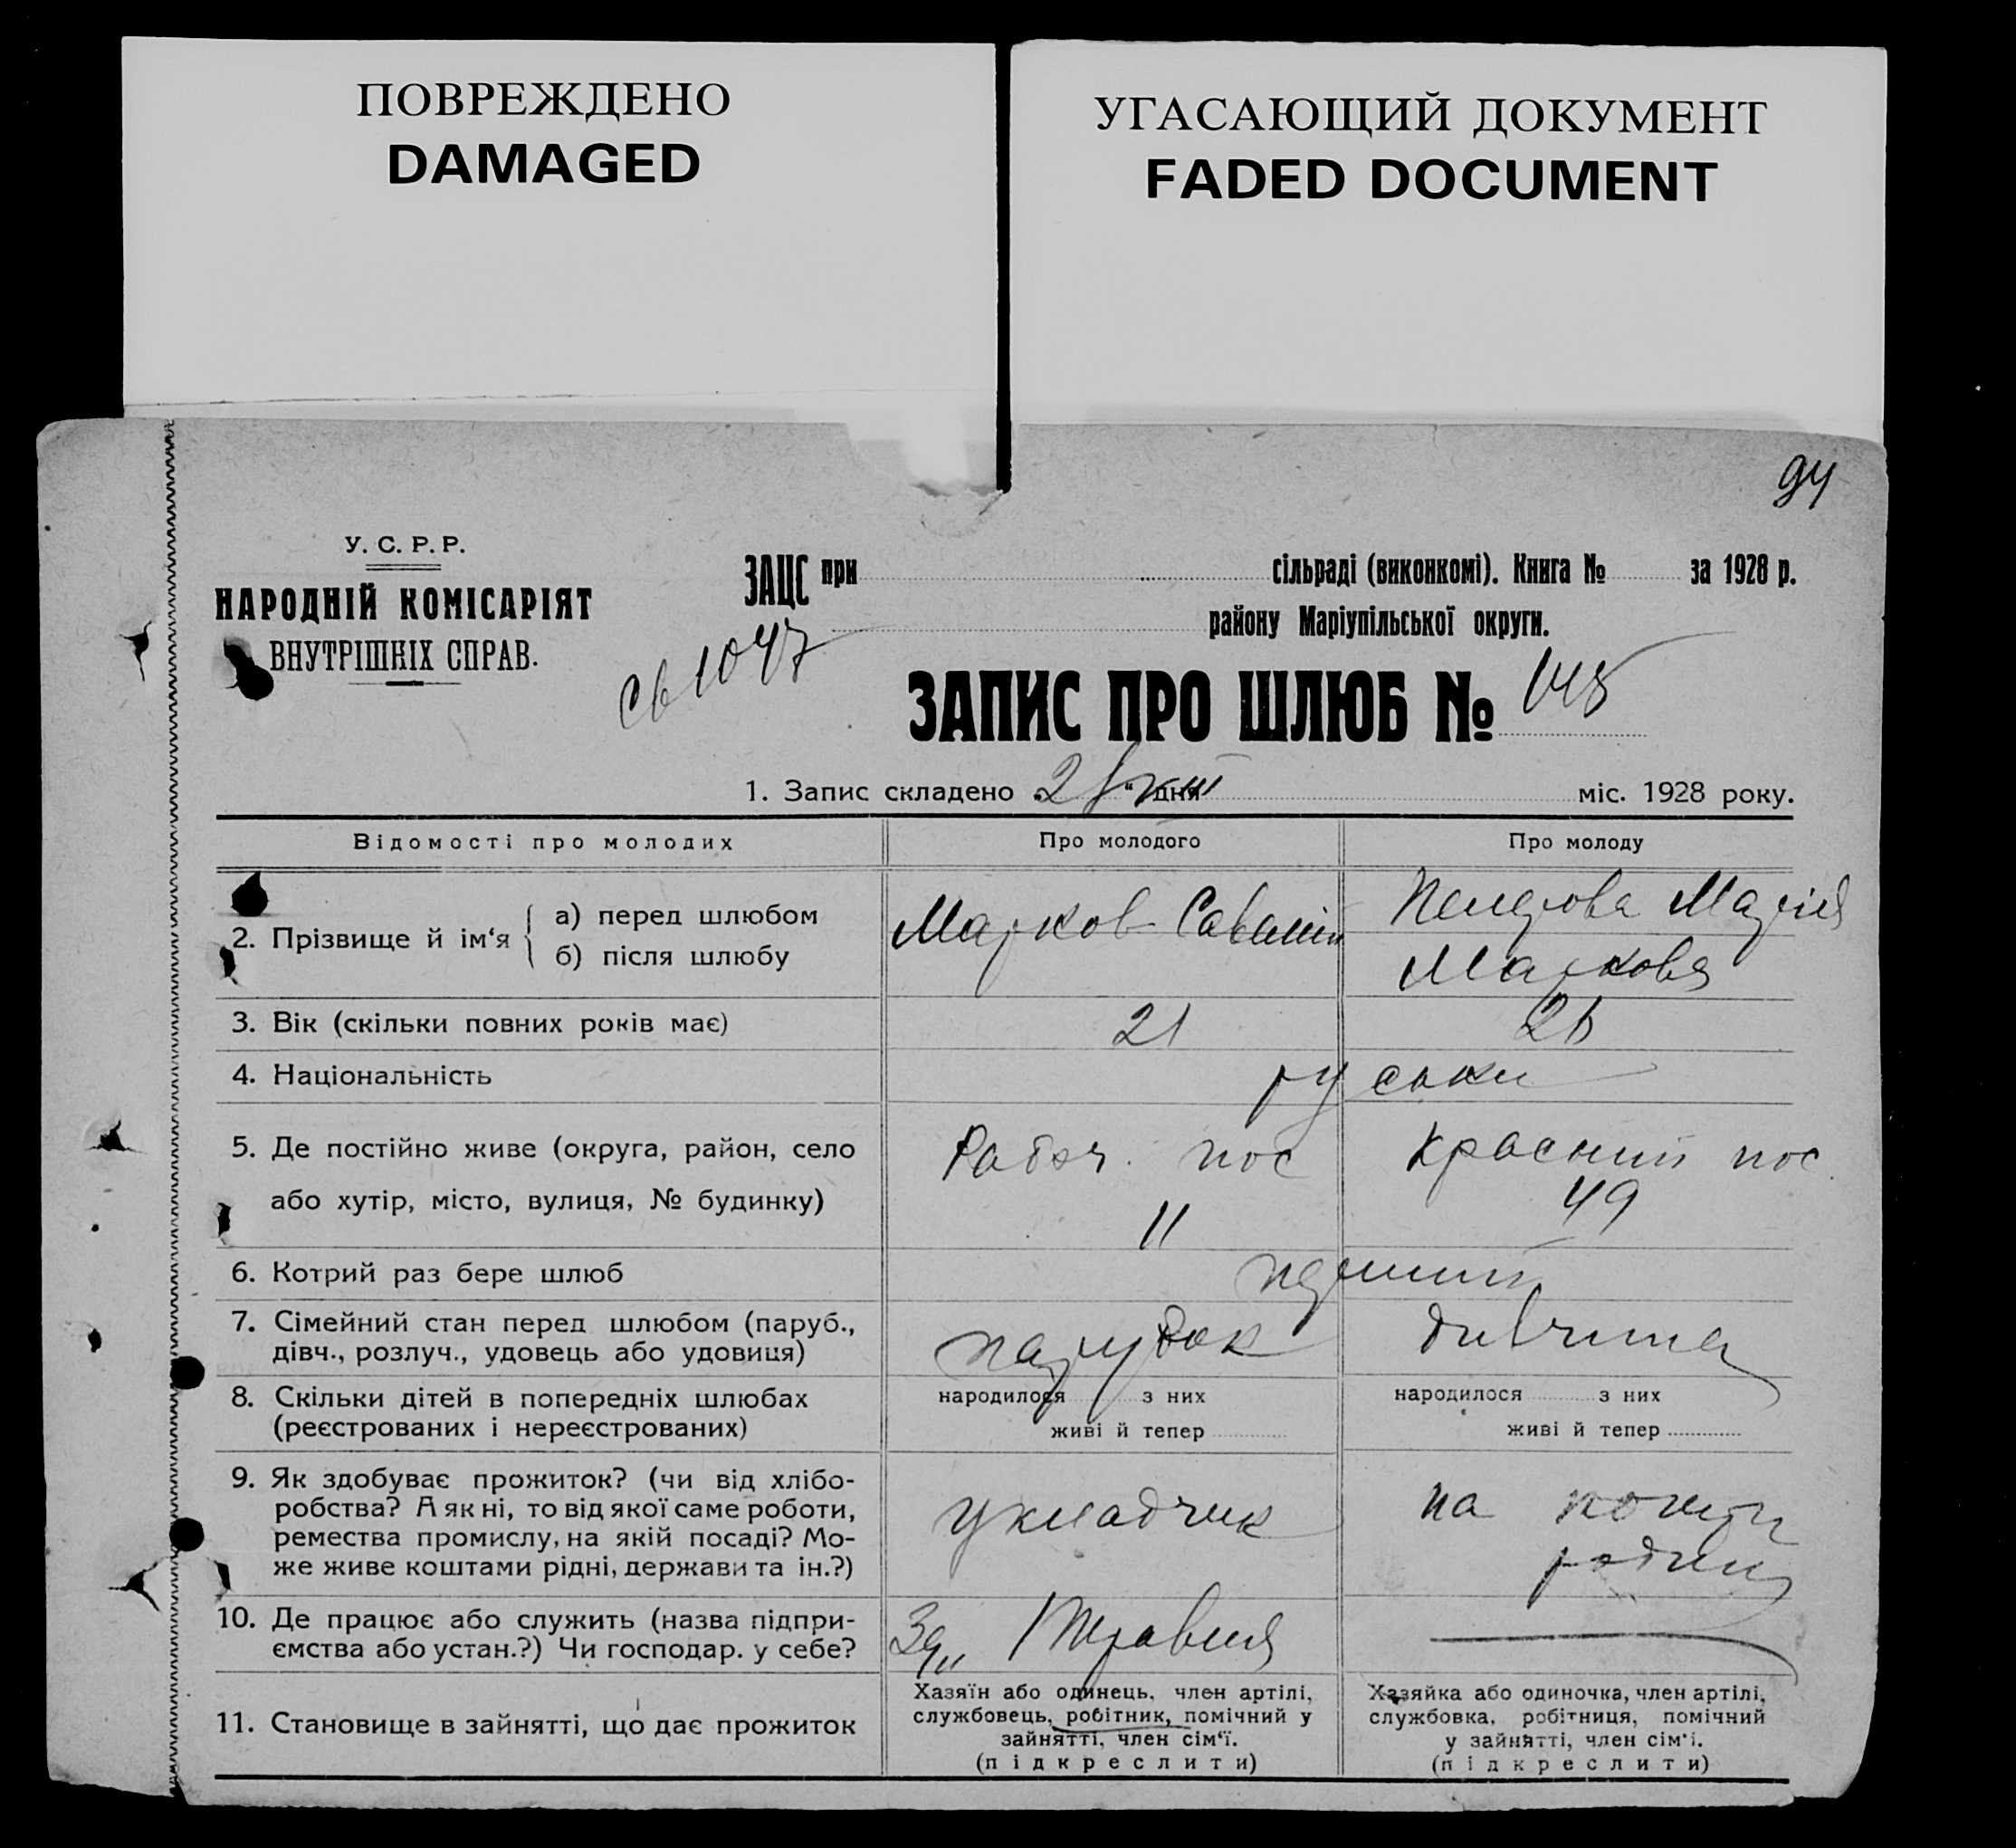 ПОВРЕЖДЕНО
DAMAGED
УГАСАЮЩИЙ ДОКУМЕНТ
FADED DOCUMENT
94
У. С. Р. Р.
НАРОДНІЙ КОМІСАРІЯТ
ВНУТРІШНІХ СПРАВ.
ЗАЦС при сільраді (виконкомі). Книга № за 1928 р.
району Маріупільської округи.
св 1047
ЗАПИС ПРО ШЛЮБ № 145
1. Запис складено „2 “ дня VIII міс. 1928 року.
Відомості про молодих Про молодого Про молоду
2. Прізвище й ім‘я { а) перед шлюбом Марков Мария
б) після шлюбу Маркова
3. Вік (скільки повних років має) 21
4. Національність руськи
5. Де постійно живе (округа, район, село Рабоч. пос Красний пос.
або хутір, місто, вулиця, № будинку) 11 49
6. Котрий раз бере шлюб перший
7. Сімейний стан перед шлюбом (паруб., парубок дивчина
дівч., розлуч., удовець або удовиця)
8. Скільки дітей в попередніх шлюбах народилося з них народилося з них
(реєстрованих і нереєстрованих) живі й тепер живі й тепер
9. Як здобуває прожиток? (чи від хлібо-
робства? А як ні, то від якої саме роботи, укладчик на
ремества промислу, на якій посаді? Мо-
же живе коштами рідні, держави та ін.?)
10. Де працює або служить (назва підпри-
ємства або устан.?) Чи господар. у себе?
Хазяїн або одинець, член артілі, Хазяйка або одиночка, член артілі,
11. Становище в зайнятті, що дає прожиток службовець, робітник, помічний у службовка, робітниця, помічний
зайнятті, член сім‘ї. у зайнятті, член сім‘і.
(підкреслити) (підкреслити)